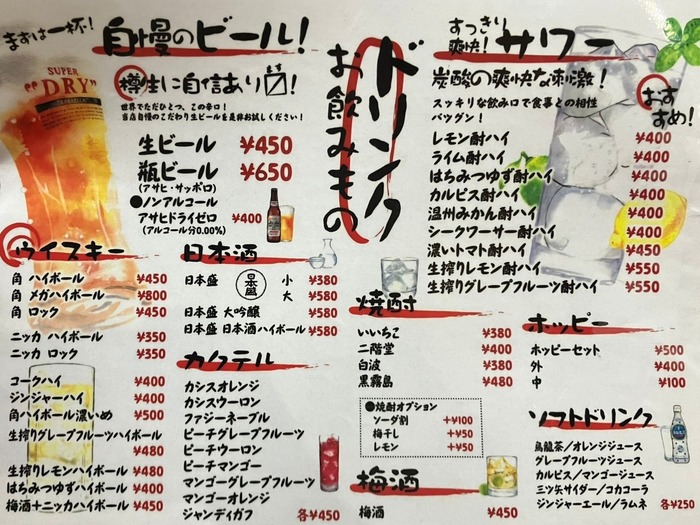 まずは一杯!
自慢のビール!
SUPER
"DRY"
樽生に自信あり〼!
ます
世界でただひとつ、この辛口!
当店自慢のこだわり生ビールを是非お試しください!
生ビール ¥450
瓶ビール ¥650
(アサヒ・サッポロ)
●ノンアルコール
アサヒドライゼロ ¥400
(アルコール分0.00%)
ドリンク
お飲みもの
すっきり
爽快!
サワー
炭酸の爽快な刺激!
スッキリな飲み口で食事との相性
バツグン!
おすすめ!
レモン酎ハイ ¥400
ライム酎ハイ ¥400
はちみつゆず酎ハイ ¥400
カルピス酎ハイ ¥400
温州みかん酎ハイ ¥400
シークワーサー酎ハイ ¥400
濃いトマト酎ハイ ¥450
生搾りレモン酎ハイ ¥550
生搾りグレープフルーツ酎ハイ ¥550
ウイスキー
角 ハイボール ¥450
角 メガハイボール ¥800
角 ロック ¥450
ニッカ ハイボール ¥350
ニッカ ロック ¥350
コークハイ ¥400
ジンジャーハイ ¥400
角ハイボール濃いめ ¥500
生搾りグレープフルーツハイボール
¥480
生搾りレモンハイボール ¥480
はちみつゆずハイボール ¥400
梅酒+ニッカハイボール ¥450
日本酒
日本盛 日本盛 小 ¥380
大 ¥580
日本盛 大吟醸 ¥580
日本盛 日本酒ハイボール ¥580
カクテル
カシスオレンジ
カシスウーロン
ファジーネーブル
ピーチグレープフルーツ
ピーチウーロン
ピーチマンゴー
マンゴーグレープフルーツ
マンゴーオレンジ
シャンディガフ 各¥450
焼酎
いいちこ ¥380
二階堂 ¥400
白波 ¥380
黒霧島 ¥480
●焼酎オプション
ソーダ割 +¥100
梅干し +¥50
レモン +¥50
梅酒
梅酒 ¥450
ホッピー
ホッピーセット ¥500
外 ¥400
中 ¥100
ソフトドリンク
烏龍茶/オレンジジュース
グレープフルーツジュース
カルピス/マンゴージュース
三ツ矢サイダー/コカコーラ
ジンジャーエール/ラムネ 各¥250